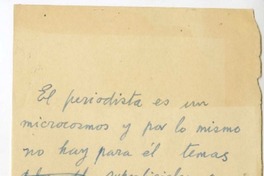 El periodista es un
microcosmos y por lo mismo
no hay para él temas
superficiales